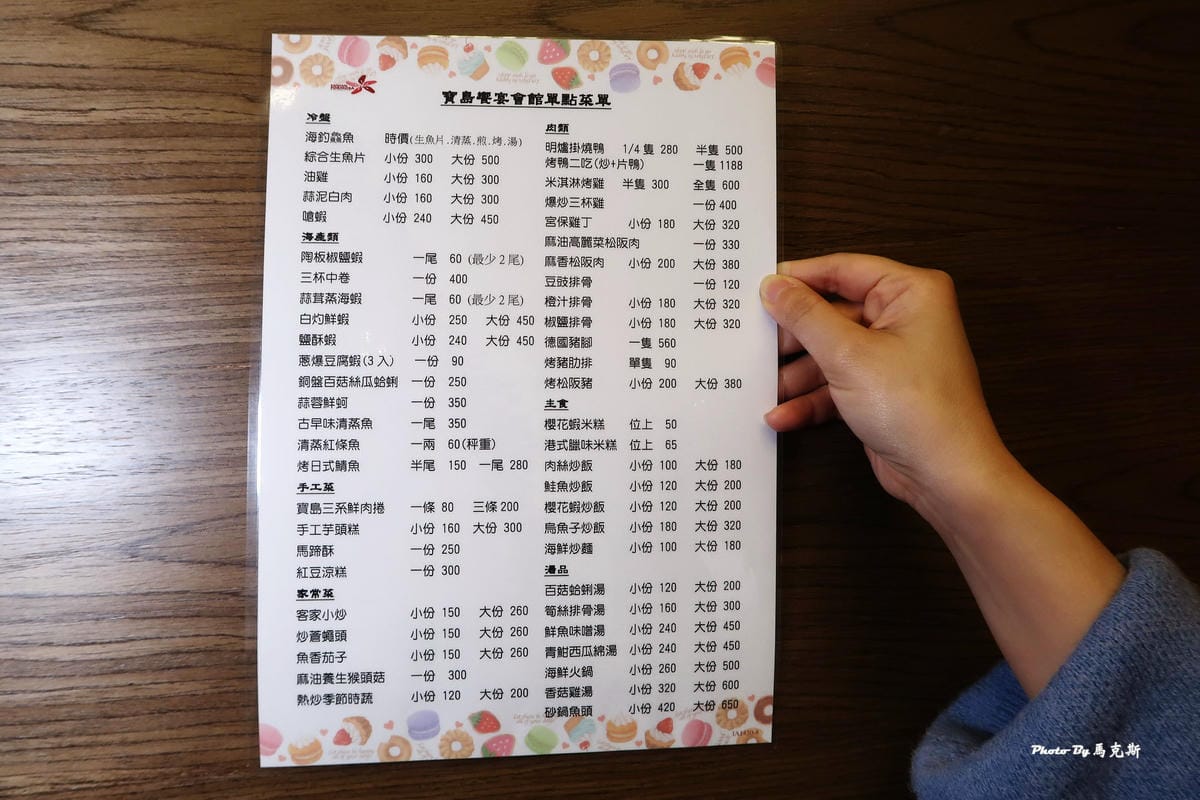 寶島饗宴會館單點菜單
冷盤
海釣鱻魚 時價(生魚片.清蒸.煎.烤.湯)
綜合生魚片 小份 300 大份 500
油雞 小份 160 大份 300
蒜泥白肉 小份 160 大份 300
嗆蝦 小份 240 大份 450
海產類
陶板椒鹽蝦 一尾 60 (最少2尾)
三杯中卷 一份 400
蒜茸蒸海蝦 一尾 60 (最少2尾)
白灼鮮蝦 小份 250 大份 450
鹽酥蝦 小份 240 大份 450
蔥爆豆腐蝦(3入) 一份 90
銅盤百菇絲瓜蛤蜊 一份 250
蒜蓉鮮蚵 一份 350
古早味清蒸魚 一尾 350
清蒸紅條魚 一兩 60(秤重)
烤日式鯖魚 半尾 150 一尾 280
手工菜
寶島三系鮮肉捲 一條 80 三條 200
手工芋頭糕 小份 160 大份 300
馬蹄酥 一份 250
紅豆涼糕 一份 300
家常菜
客家小炒 小份 150 大份 260
炒蒼蠅頭 小份 150 大份 260
魚香茄子 小份 150 大份 260
麻油養生猴頭菇 一份 300
熱炒季節時蔬 小份 120 大份 200
肉類
明爐掛燒鴨 1/4隻 280 半隻 500
烤鴨二吃(炒+片鴨) 一隻 1188
米淇淋烤雞 半隻 300 全隻 600
爆炒三杯雞 一份 400
宮保雞丁 小份 180 大份 320
麻油高麗菜松阪肉 一份 330
麻香松阪肉 小份 200 大份 380
豆豉排骨 一份 120
橙汁排骨 小份 180 大份 320
椒鹽排骨 小份 180 大份 320
德國豬腳 一隻 560
烤豬肋排 單隻 90
烤松阪豬 小份 200 大份 380
主食
櫻花蝦米糕 位上 50
港式臘味米糕 位上 65
肉絲炒飯 小份 100 大份 180
鮭魚炒飯 小份 120 大份 200
櫻花蝦炒飯 小份 120 大份 200
烏魚子炒飯 小份 180 大份 320
海鮮炒麵 小份 100 大份 180
湯品
百菇蛤蜊湯 小份 120 大份 200
筍絲排骨湯 小份 160 大份 300
鮮魚味噌湯 小份 240 大份 450
青魽西瓜綿湯 小份 240 大份 450
海鮮火鍋 小份 260 大份 500
香菇雞湯 小份 320 大份 600
砂鍋魚頭 小份 420 大份 650
Photo By 馬克斯